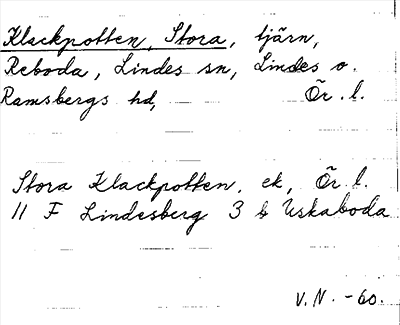 Klackpotten, Stora, tjärn,
Reboda, Lindes sn, Lindes o.
Ramsbergs hd, Ör. l.
Stora Klackpotten, ek, Ör l.
11 F Lindesberg 3 b Uskaboda
V.N. -60.